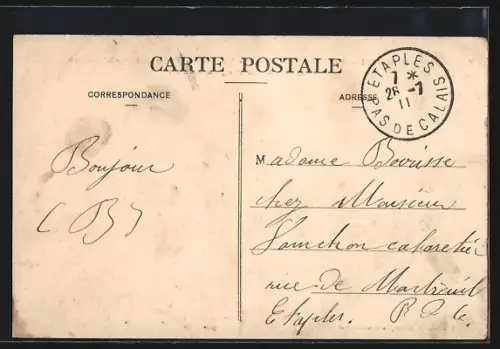 CARTE POSTALE
CORRESPONDANCE
ADRESSE
ETAPLES
7 *
26 -7
11
PAS DE CALAIS
Bonjour
(B)
Madame Bourisse
chez Monsieur
cabaretier
rue de Montreuil
Etaples. P d C.